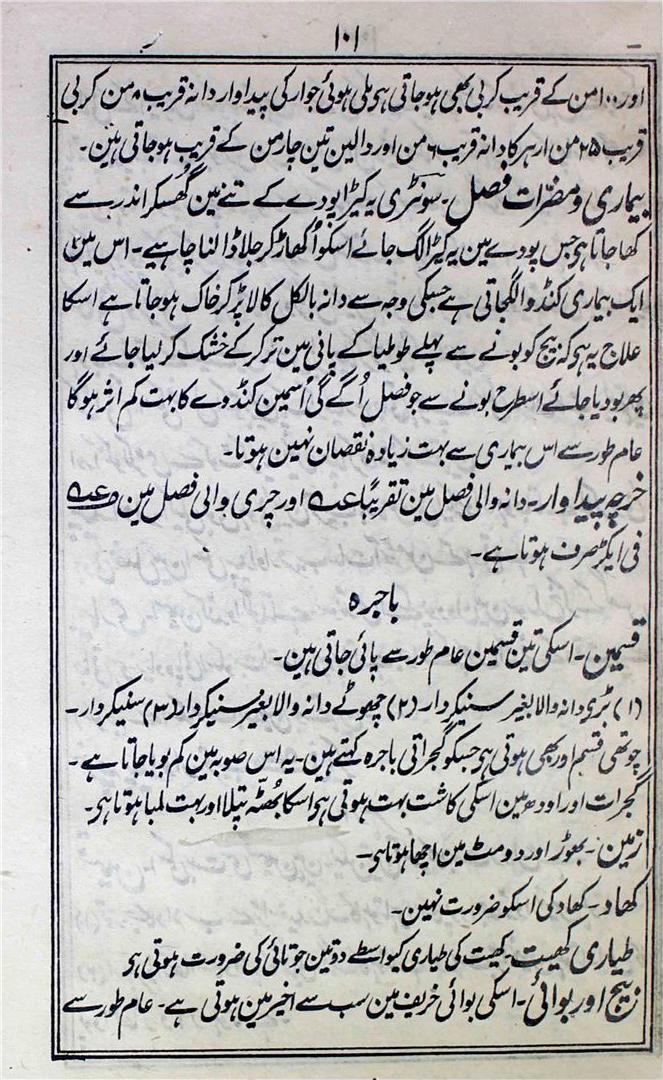 ۱۰۱
اور ۱۰۰ من کے قریب کربی بھی ہوجاتی ہی ملی ہوئی جوار کی پیداوار دانہ قریب ۸ من کربی
قریب ۲۵ من ارہر کا دانہ قریب ۶ من اور دالین تین چار من کے قریب ہوجاتی ہین۔
بیماری و مضرّات فصل۔ سونڈی یہ کیڑا پودے کے تنے مین گھسکر اندر سے
کھا جاتا ہی جس پودے مین یہ کیڑا لگ جائے اسکو اُکھاڑ کر جلا ڈالنا چاہیے۔ اس مین
ایک بیماری کنڈوا لگجاتی ہے جسکی وجہ سے دانہ بالکل کالا پڑ کر خاک ہوجاتا ہے اسکا
علاج یہ ہی کہ بیج کو بونے سے پہلے طوطیا کے پانی مین تر کر کے خشک کر لیا جائے اور
پھر بو دیا جائے اسطرح بونے سے جو فصل اُگے گی اُسمین کنڈوے کا بہت کم اثر ہوگا
عام طور سے اس بیماری سے بہت زیادہ نقصان نہین ہوتا۔
خرچہ پیداوار۔ دانہ والی فصل مین تقریبًا اور چری والی فصل مین
فی ایکڑ صرف ہوتا ہے۔
باجرہ
قسمین۔ اسکی تین قسمین عام طور سے پائی جاتی ہین۔
(۱) بڑی دانہ والا بغیر سنیکردار (۲) چھوٹے دانہ والا بغیر سنیکردار (۳) سنیکردار۔
چوتھی قسم اور بھی ہوتی ہی جسکو گجراتی باجرہ کہتے ہین۔ یہ اس صوبہ مین کم بویا جاتا ہے۔
گجرات اور اودھ مین اسکی کاشت بہت ہوتی ہی اسکا بھُٹّہ پتلا اور بہت لمبا ہوتا ہی۔
زمین۔ بھوڑ اور دومٹ مین اچھا ہوتا ہی۔
کھاد۔ کھاد کی اسکو ضرورت نہین۔
طیاری کھیت۔ کھیت کی طیاری کیواسطے دو تین جوتائی کی ضرورت ہوتی ہی
بیج اور بوائی۔ اسکی بوائی خریف مین سب سے اخیر مین ہوتی ہے۔ عام طور سے